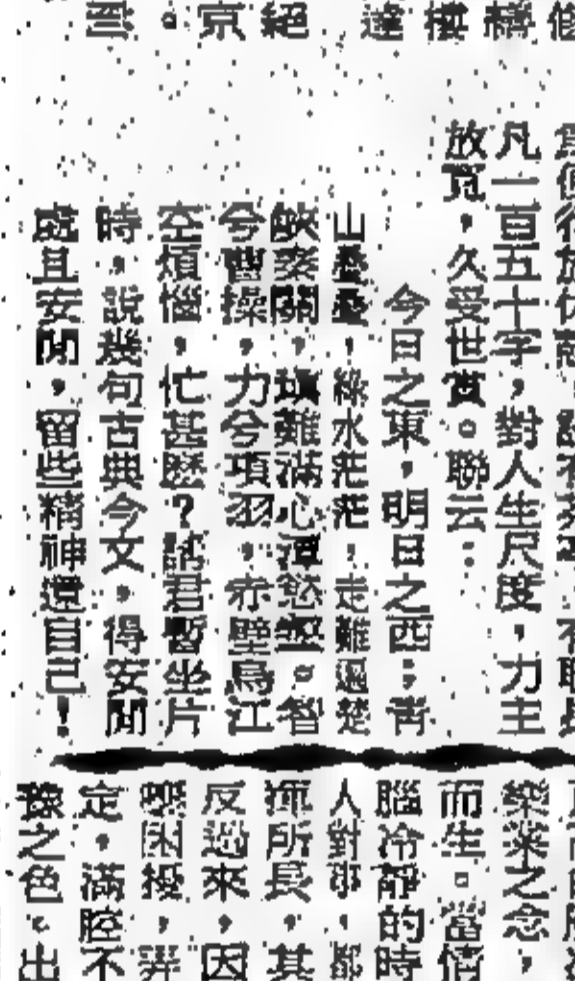 凡一百五十字，對人生尺度，力主
放寬，久受世賞。聯云：
今日之東，明日之西；靑
山疊疊，綠水茫茫，走難過楚
峽秦關，填難滿心潭慾壑。智
兮曹操，力兮項羽，赤壁烏江
空煩惱，忙甚麽？請君暫坐片
時，說幾句古典今文，得安閒
處且安閒，留些精神還自己！
樂業之念，
而生。當情
腦冷靜的時
人對事，都
揮所長，其
反過來，因
定。滿腔不
豫之色。出